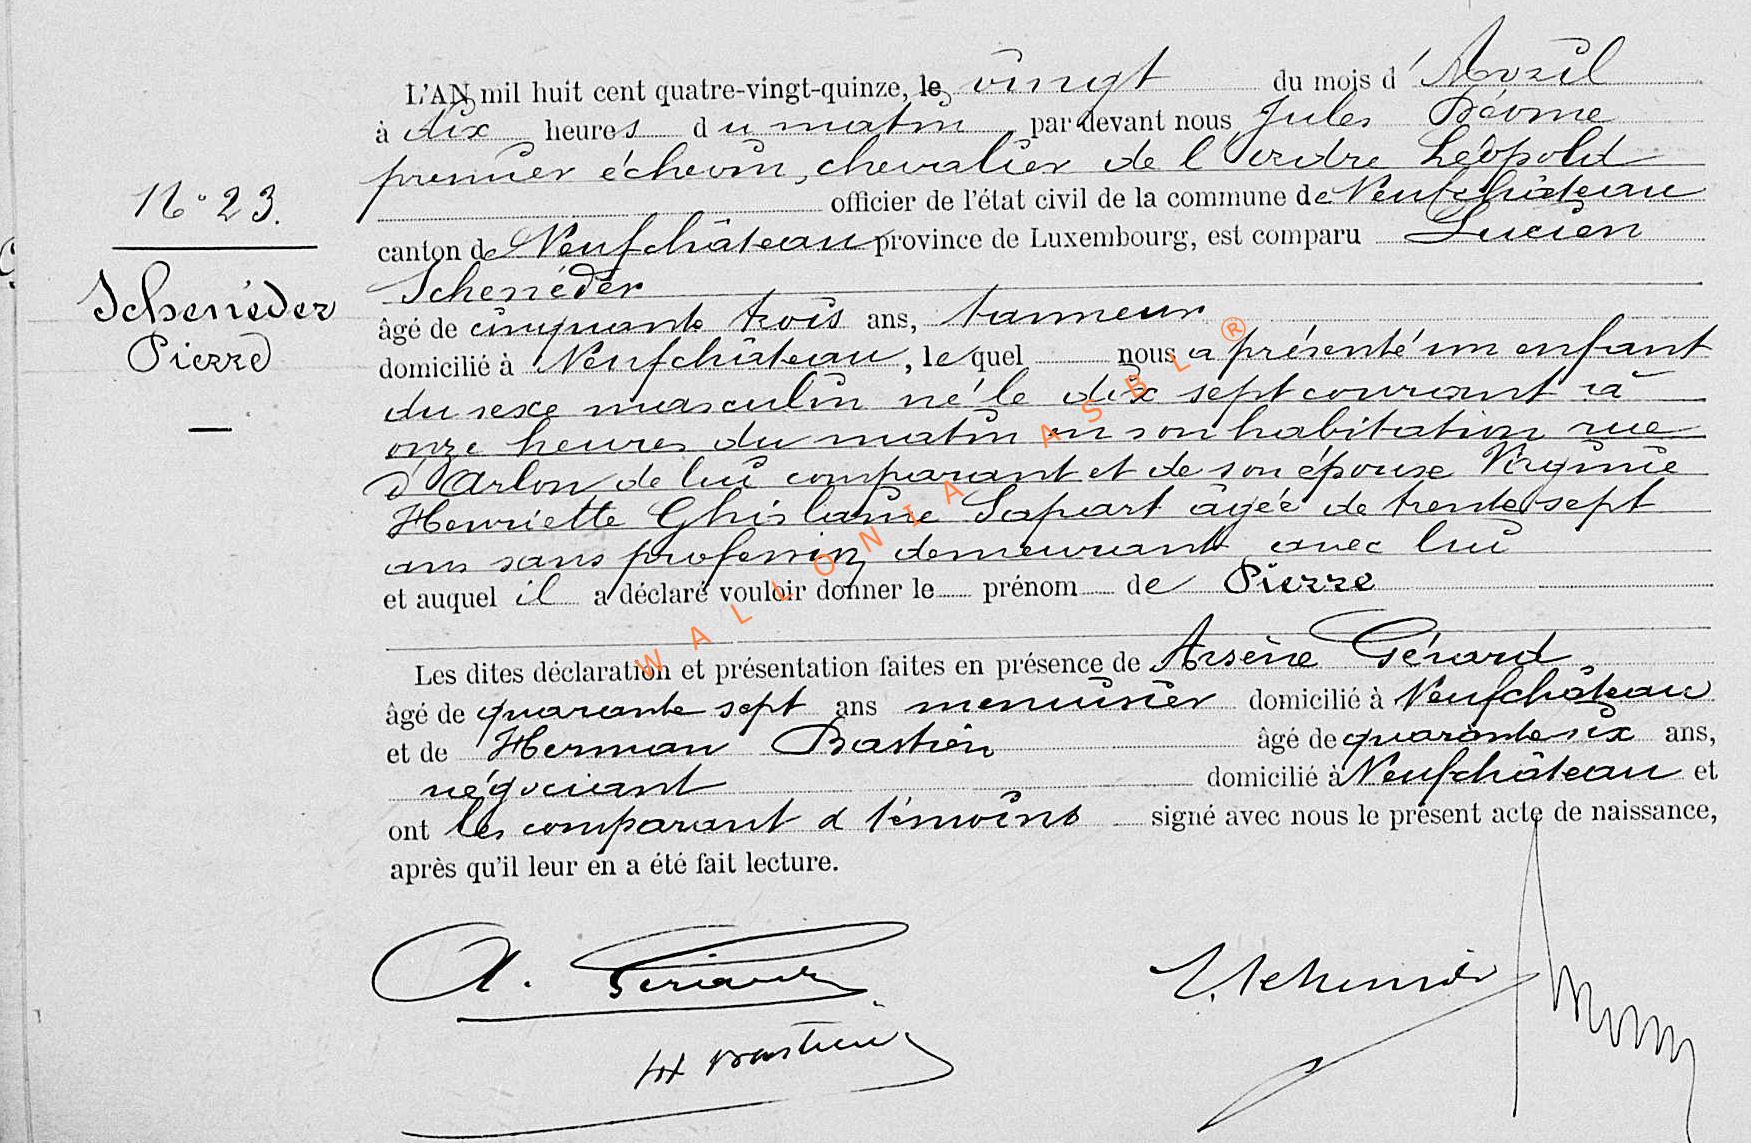 L'AN mil huit cent quatre-vingt-quinze, le vingt du mois d'Avril
à dix heures du matin par devant nous Jules
premier échevin, chevalier de l'ordre Léopold
officier de l'état civil de la commune de Neufchâteau
canton de Neufchâteau province de Luxembourg, est comparu Lucien
Scheneder
âgé de cinquante trois ans, tanneur
domicilié à Neufchâteau, lequel nous a présenté un enfant
du sexe masculin né le dix sept courant à
onze heures du matin en son habitation rue
d'Arlon de lui comparant et de son épouse Virginie
Henriette Ghislaine Sapart âgée de trente sept
ans sans profession demeurant avec lui
et auquel il a déclaré vouloir donner le prénom de Pierre
Les dites déclaration et présentation faites en présence de Arsène Gérard,
âgé de quarante sept ans menuisier domicilié à Neufchâteau
et de Herman Bastien âgé de quarante six ans,
négociant domicilié à Neufchâteau et
ont les comparant & témoins signé avec nous le présent acte de naissance,
après qu'il leur en a été fait lecture.
N° 23.
Scheneder
Pierre
A. Gérard
H Bastien
WALLONIA ASBL ®